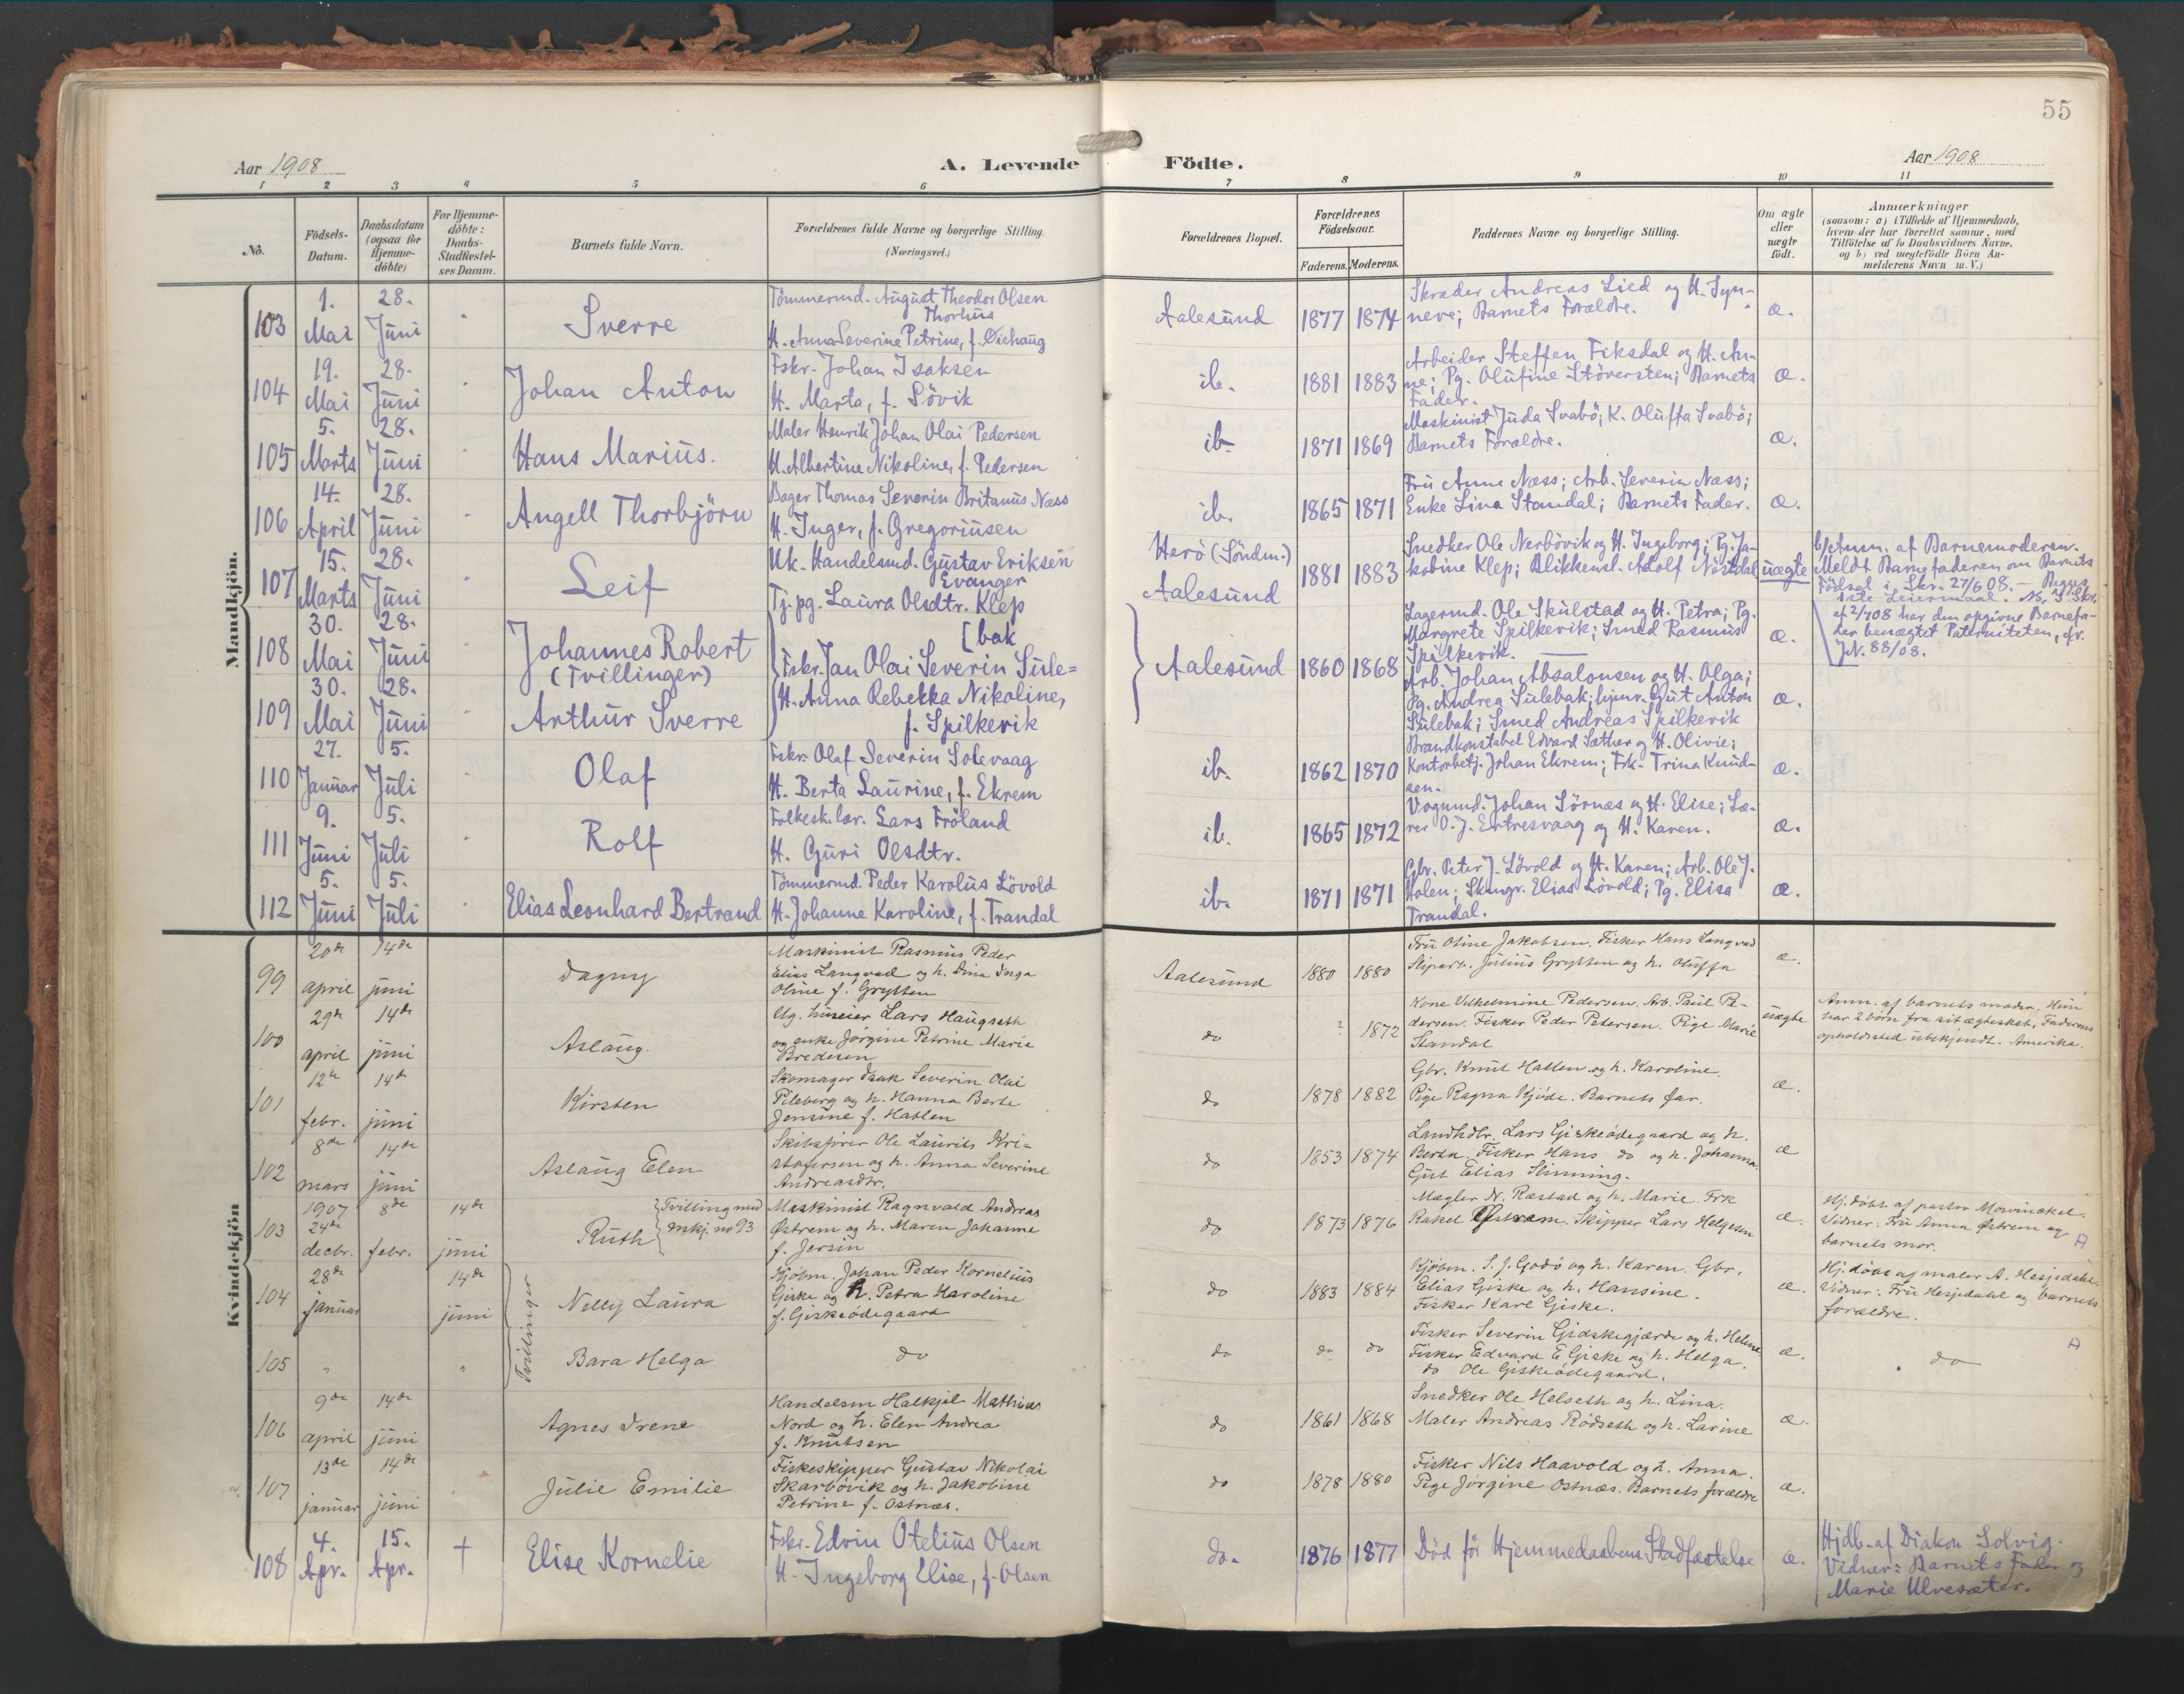 55
Aar 1908
A. Levende Födte.
Aar 1908
1 2 3 4 5 6 7 8 9 10 11
No.
Födsels-
Datum.
Daabsdatum
(ogsaa for
Hjemme-
döbte)
For Hjemme-
döbte:
Daabs-
Stadfæstel-
ses Datum.
Barnets fulde Navn.
Forældrenes fulde Navne og borgerlige Stilling.
(Næringsvei.)
Forældrenes Bopæl.
Forældrenes
Födselsaar.
Faderens. Moderens.
Faddernes Navne og borgerlige Stilling.
Om ægte
eller
uægte
födt.
Anmærkninger
(saasom: a) i Tilfælde af Hjemmedaab,
hvem der har forrettet samme, med
Tilföielse af to Daabsvidners Navne,
og b) ved uægtefödte Börn An-
melderens Navn m. V.)
Mandkjön.
103
1.
Mai
28.
Juni
Sverre
Tömmermd. August Theodor Olsen
Thorhus
H. Anna Severine Petrine, f. Öiehaug
Aalesund
1877 1874
Skræder Andreas Lied og H. Syn-
neve; Barnets Forældre.
æ.
104
19.
Mai
28.
Juni
Johan Anton
Fskr. Johan Isaksen
H. Marta, f. Sövik
ib.
1881 1883
Arbeider Steffen Fiksdal og H. An-
ne; Pg. Olufine Stöversten; Barnets
Fader.
æ.
105
5.
Marts
28.
Juni
Hans Marius.
Maler Henrik Johan Olai Pedersen
H. Albertine Nikoline, f. Pedersen
ib.
1871 1869
Maskinist Juda Svabö; K. Oluffa Svabö;
Barnets Forældre.
æ.
106
14.
April
28.
Juni
Angell Thorbjörn
Bager Thomas Severin Britanus Næss
H. Inger, f. Gregoriusen
ib.
1865 1871
Fru Anne Næss; Arb. Severin Næss;
Enke Lina Standal; Barnets Fader.
æ.
107
15.
Marts
28.
Juni
Leif
Uk. Handelsmd. Gustav Eriksen
Evanger
Tj. pg. Laura Olsdtr. Klep
Herö (Söndm.)
Aalesund
1881 1883
Snedker Ole Nerbövik og H. Ingeborg; Pg. Ja-
kobine Klep; Blikkensl. Adolf Nestdal
uægte
b/ Anm. af Barnemoderen.
Meldt Barnefaderen om Barnets
Födsel i Skr. 27/6 08. —
1ste Leiermaal.
af 2/7 08 har den opgivne Barnefa-
der benægtet Paterniteten, cfr.
JN. 88/08.
108
30.
Mai
28.
Juni
Johannes Robert
(Tvillinger)
Fskr. Jan Olai Severin Sule=
[bak
H. Anna Rebekka Nikoline,
f. Spilkevik
Aalesund
1860 1868
Lagermd. Ole Skulstad og H. Petra; Pg.
Margrete Spilkevik; Smed Rasmus
Spilkevik.
æ.
109
30.
Mai
28.
Juni
Arthur Sverre
Arb. Johan Absalonsen og H. Olga;
Pg. Andrea Sulebak; hjmv. Gut Anton
Sulebak; Smed Andreas Spilkevik
æ.
110
27.
Januar
5.
Juli
Olaf
Fskr. Olaf Severin Solevaag
H. Berta Laurine, f. Ekrem
ib.
1862 1870
Brandkonstabel Edvard Sæther og H. Olivie;
Kontorbetj. Johan Ekrem; Frk. Trina Knud-
sen.
æ.
111
9.
Juni
5.
Juli
Rolf
Folkesk.lær. Lars Fröland
H. Guri Olsdtr.
ib.
1865 1872
Vognmd. Johan Sörnæs og H. Elise; Læ-
rer O. J. Ertresvaag og H. Karen.
æ.
112
5.
Juni
5.
Juli
Elias Leonhard Bertrand
Tömmermd. Peder Karolus Lövold
H. Johanne Karoline, f. Trandal
ib.
1871 1871
Gbr. Peter J. Lövold og H. Karen; Arb. Ole J.
Holen; Skmgr. Elias Lövold; Pg. Elisa
Trandal.
æ.
Kvindekjön
99
20de
april
14de
juni
Dagny
Maskinist Rasmus Peder
Elias Langvad og h. Dina Inga
Oline f. Grytten
Aalesund
1880 1880
Fru Oline Jakobsen. Fisker Hans Langvad
Skiparb. Julius Grytten og h. Oluffa
æ.
100
29de
april
14de
juni
Aslaug.
Ug. huseier Lars Haugseth
og enke Jørgine Petrine Marie
Bredesen
do
? 1872
Kone Vilhelmine Pedersen. Arb. Paul Pe-
dersen. Fisker Peder Petersen. Pige Marie
Standal
uægte
Anm. af barnets moder. Hun
har 2 børn fra sit ægteskab. Faderens
opholdssted ubekjendt. Amerika.
101
12te
febr.
14de
juni
Kirsten
Skomager Isak Severin Olai
Pileberg og h. Hanna Berte
Jensine f. Hatlen
do
1878 1882
Gbr. Knut Hatlen og h. Karoline.
Pige Ragna Kjøde. Barnets far.
æ.
102
8de
mars
14de
juni
Aslaug Elen
Skibsfører Ole Laurits Kri=
stofersen og h. Anna Severine
Andreasdtr.
do
1853 1874
Landhdlr. Lars Giskeødegaard og h.
Berta. Fisker Hans do og h. Johanna.
Gut Elias Slinning.
æ
103
1907
24de
decbr.
8de
febr.
14de
juni
Ruth
Tvilling med
mkj. no 93
Maskinist Ragnvald Andreas
Østrem og h. Maren Johanne
f. Jersin
do
1873 1876
Mægler N. Ræstad og h. Marie. Frk
Rakel Østrem. Skipper Lars Helgesen
æ.
Hj. døbt af pastor Mowinckel.
Vidner: Fru Anna Østrem og
barnets mor.
104
28de
januar
14de
juni
Tvillinger
Nelly Laura
Kjøbm. Johan Peder Kornelius
Giske og h. Petra Karoline
f. Giskeødegaard
do
1883 1884
Kjøbm. S. J. Godø og h. Karen. Gbr.
Elias Giske og h. Hansine.
Fisker Karl Giske.
æ.
Hj. døbt af maler A. Hesjedahl.
Vidner: Fru Hesjedahl og barnets
forældre.
105
"
"
Bara Helga
do
do
do do
Fisker Severin Gidskegjerde og h. Helene
Fisker Edvard E Giske og h. Helga.
do Ole Giskeødegaard.
æ.
do
106
9de
april
14de
juni
Agnes Irene
Handelsm Halkjel Mathias
Nord og h. Elen Andrea
f. Knutsen
do
1861 1868
Snedker Ole Helseth og h. Lina.
Maler Andreas Rødseth og h. Larine
æ.
107
13de
januar
14de
juni
Julie Emilie
Fiskeskipper Gustav Nikolai
Skarbövik og h. Jakobine
Petrine f. Ostnæs.
do
1878 1880
Fisker Nils Haavold og h. Anna.
Pige Jørgine Ostnæs. Barnets forældre
æ.
108
4.
Apr.
15.
Apr.
†
Elise Kornelie
Fskr. Edvin Otelius Olsen
H. Ingeborg Elise, f. Olsen
do.
1876 1877
Död för Hjemmedaabens Stadfæstelse
æ.
Hjdb. af Diakon Solvig.
Vidner: Barnets Fader og
Marie Ulvesæter.